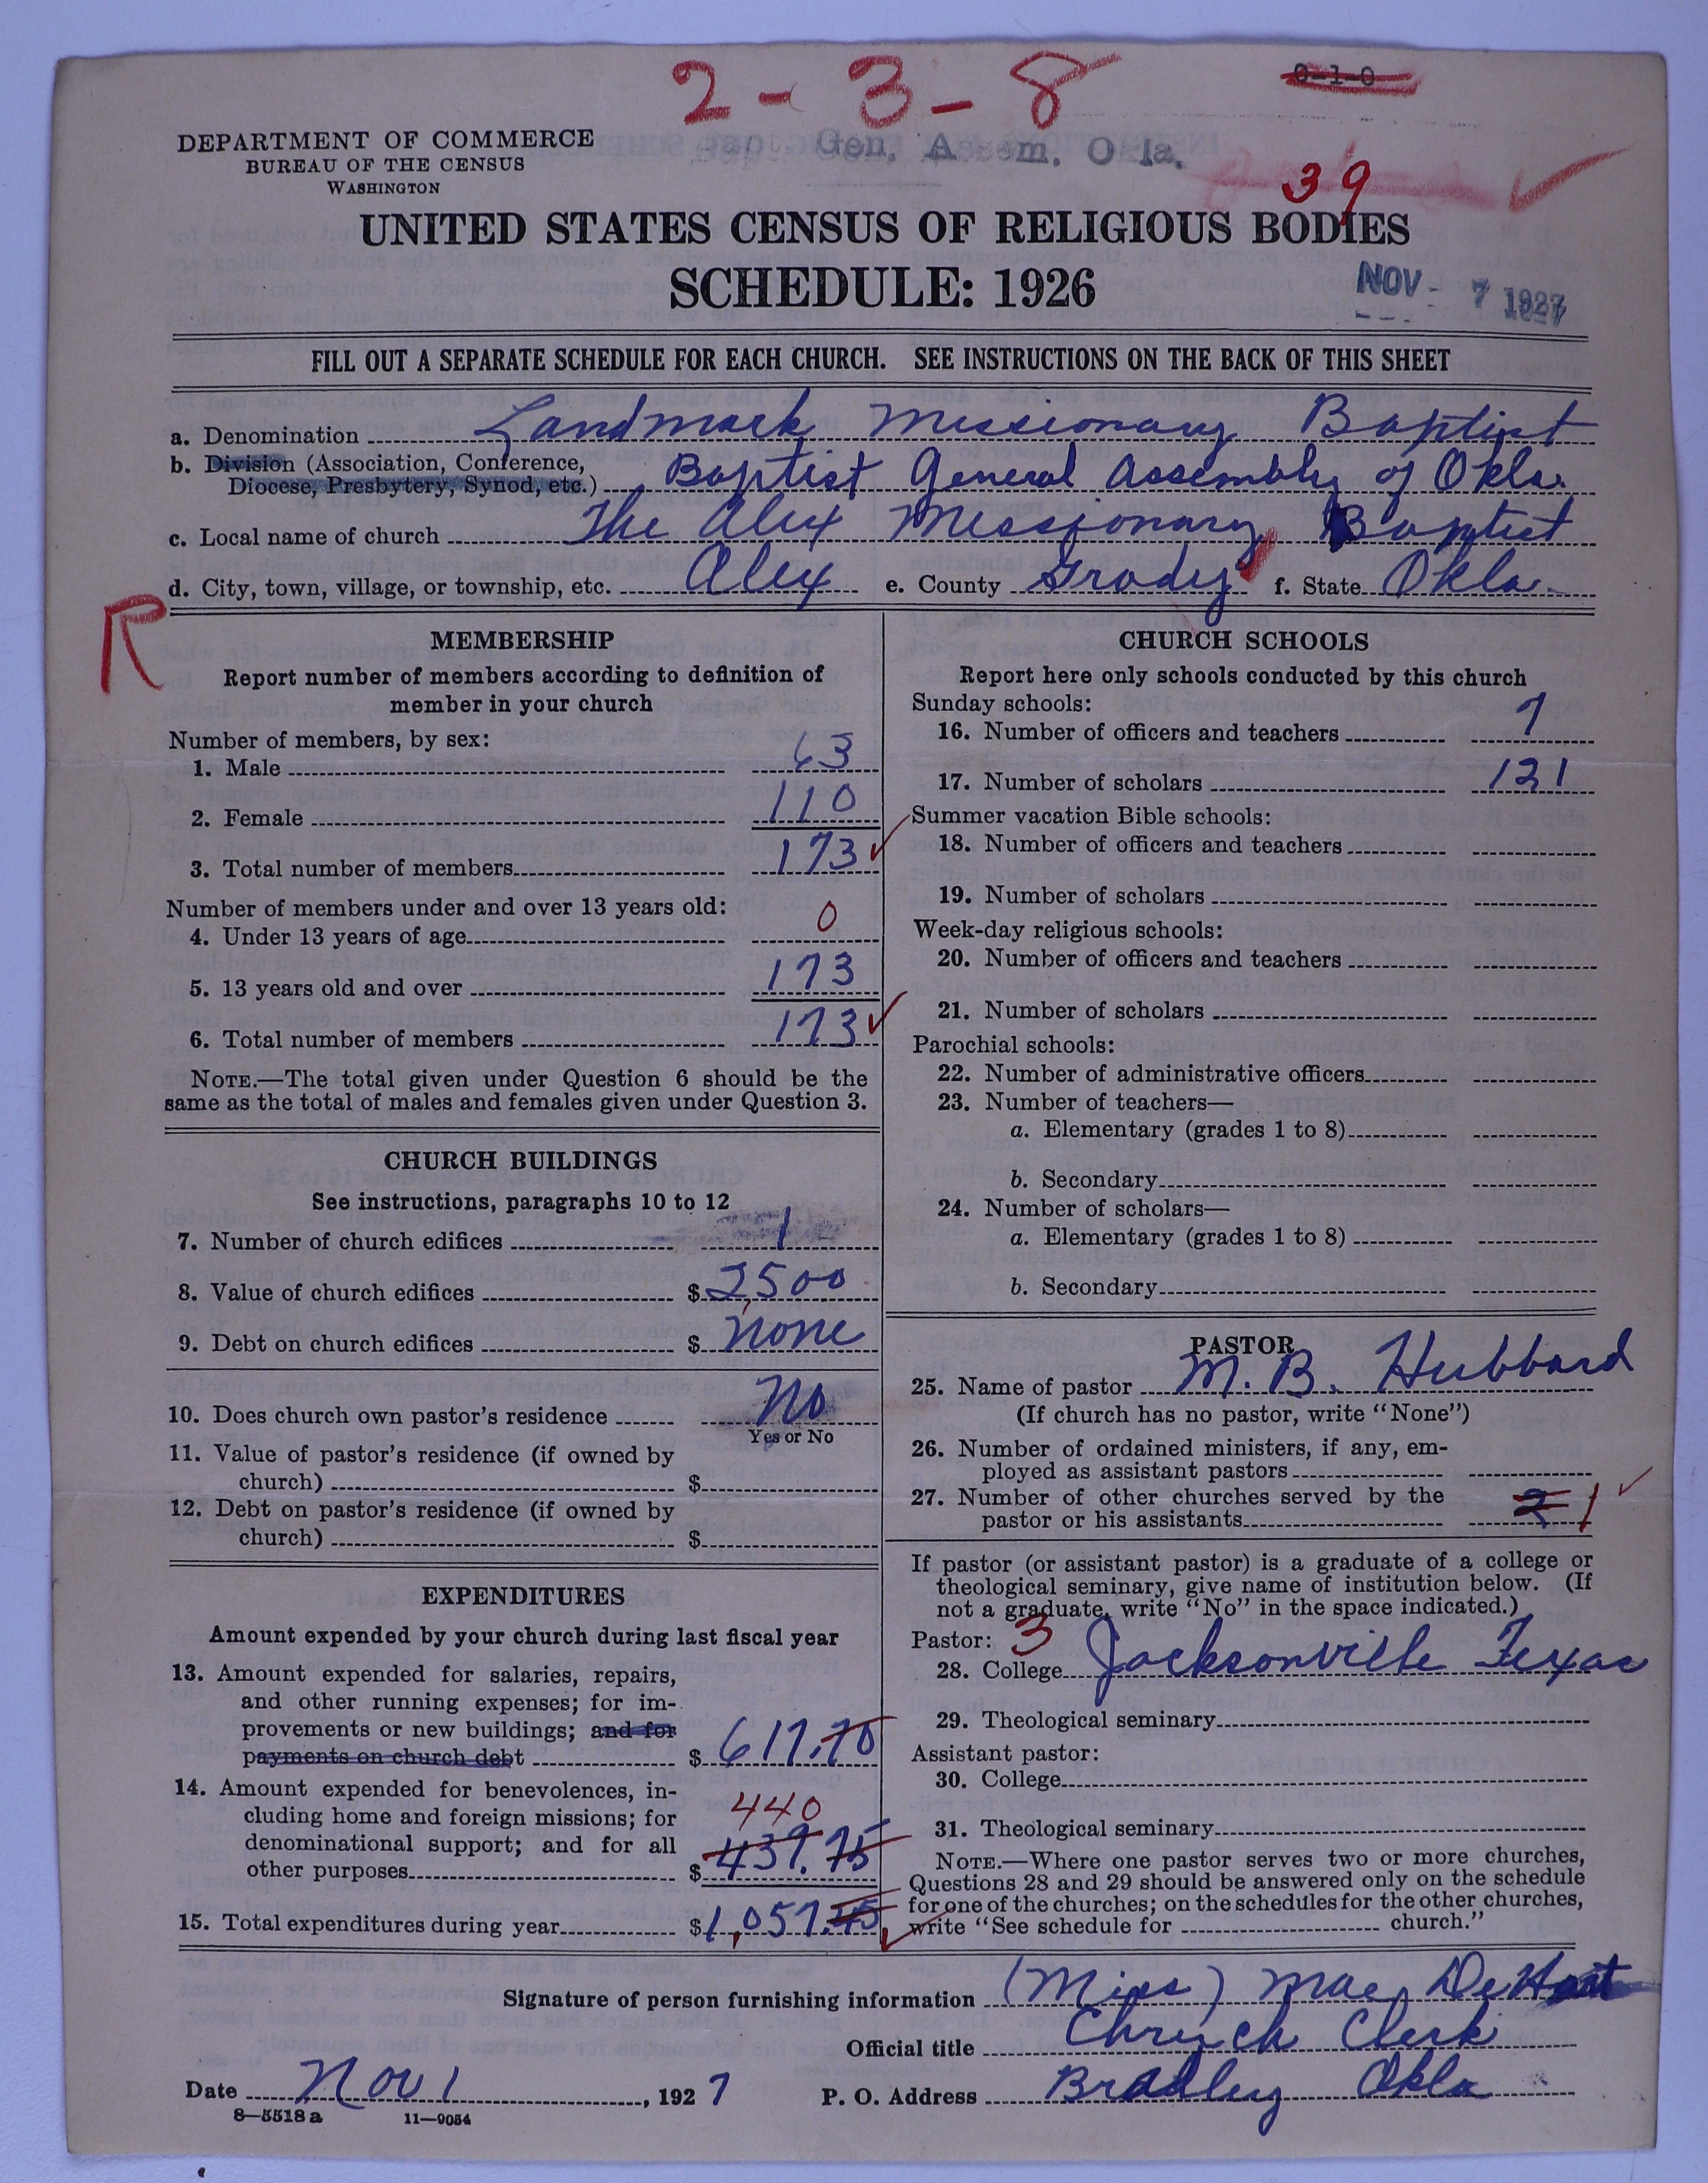 2-3-8
0-1-0
DEPARTMENT OF COMMERCE
BUREAU OF THE CENSUS
WASHINGTON
Gen. Assem. Okla.
39
UNITED STATES CENSUS OF RELIGIOUS BODIES
SCHEDULE: 1926
NOV - 7 1927
FILL OUT A SEPARATE SCHEDULE FOR EACH CHURCH. SEE INSTRUCTIONS ON THE BACK OF THIS SHEET
a. Denomination Landmark Missionary Baptist
b. Division (Association, Conference,
Diocese, Presbytery, Synod, etc.) Baptist General Assembly of Okla.
c. Local name of church The Alex Missionary Baptist
d. City, town, village, or township, etc. Alex e. County Grady f. State Okla.
R
MEMBERSHIP
Report number of members according to definition of
member in your church
Number of members, by sex:
1. Male 63
2. Female 110
3. Total number of members 173
Number of members under and over 13 years old:
4. Under 13 years of age 0
5. 13 years old and over 173
6. Total number of members 173
NOTE.—The total given under Question 6 should be the
same as the total of males and females given under Question 3.
CHURCH BUILDINGS
See instructions, paragraphs 10 to 12
7. Number of church edifices 1
8. Value of church edifices $ 2,500
9. Debt on church edifices $ none
10. Does church own pastor's residence No
Yes or No
11. Value of pastor's residence (if owned by
church) $
12. Debt on pastor's residence (if owned by
church) $
EXPENDITURES
Amount expended by your church during last fiscal year
13. Amount expended for salaries, repairs,
and other running expenses; for im-
provements or new buildings; and for
payments on church debt $ 617.70
14. Amount expended for benevolences, in-
cluding home and foreign missions; for 440
denominational support; and for all
other purposes $ 439.75
15. Total expenditures during year $ 1,057.45
CHURCH SCHOOLS
Report here only schools conducted by this church
Sunday schools:
16. Number of officers and teachers 7
17. Number of scholars 121
Summer vacation Bible schools:
18. Number of officers and teachers
19. Number of scholars
Week-day religious schools:
20. Number of officers and teachers
21. Number of scholars
Parochial schools:
22. Number of administrative officers
23. Number of teachers—
a. Elementary (grades 1 to 8)
b. Secondary
24. Number of scholars—
a. Elementary (grades 1 to 8)
b. Secondary
PASTOR
25. Name of pastor M. B. Hubbard
(If church has no pastor, write "None")
26. Number of ordained ministers, if any, em-
ployed as assistant pastors
27. Number of other churches served by the
pastor or his assistants 2 1
If pastor (or assistant pastor) is a graduate of a college or
theological seminary, give name of institution below. (If
not a graduate, write "No" in the space indicated.)
Pastor: 3
28. College Jacksonville Texas
29. Theological seminary
Assistant pastor:
30. College
31. Theological seminary
NOTE.—Where one pastor serves two or more churches,
Questions 28 and 29 should be answered only on the schedule
for one of the churches; on the schedules for the other churches,
write "See schedule for church."
Signature of person furnishing information (Miss) Mae DeHart
Official title Church Clerk
Date Nov 1, 1927 P. O. Address Bradley Okla
8—5518 a 11—9054